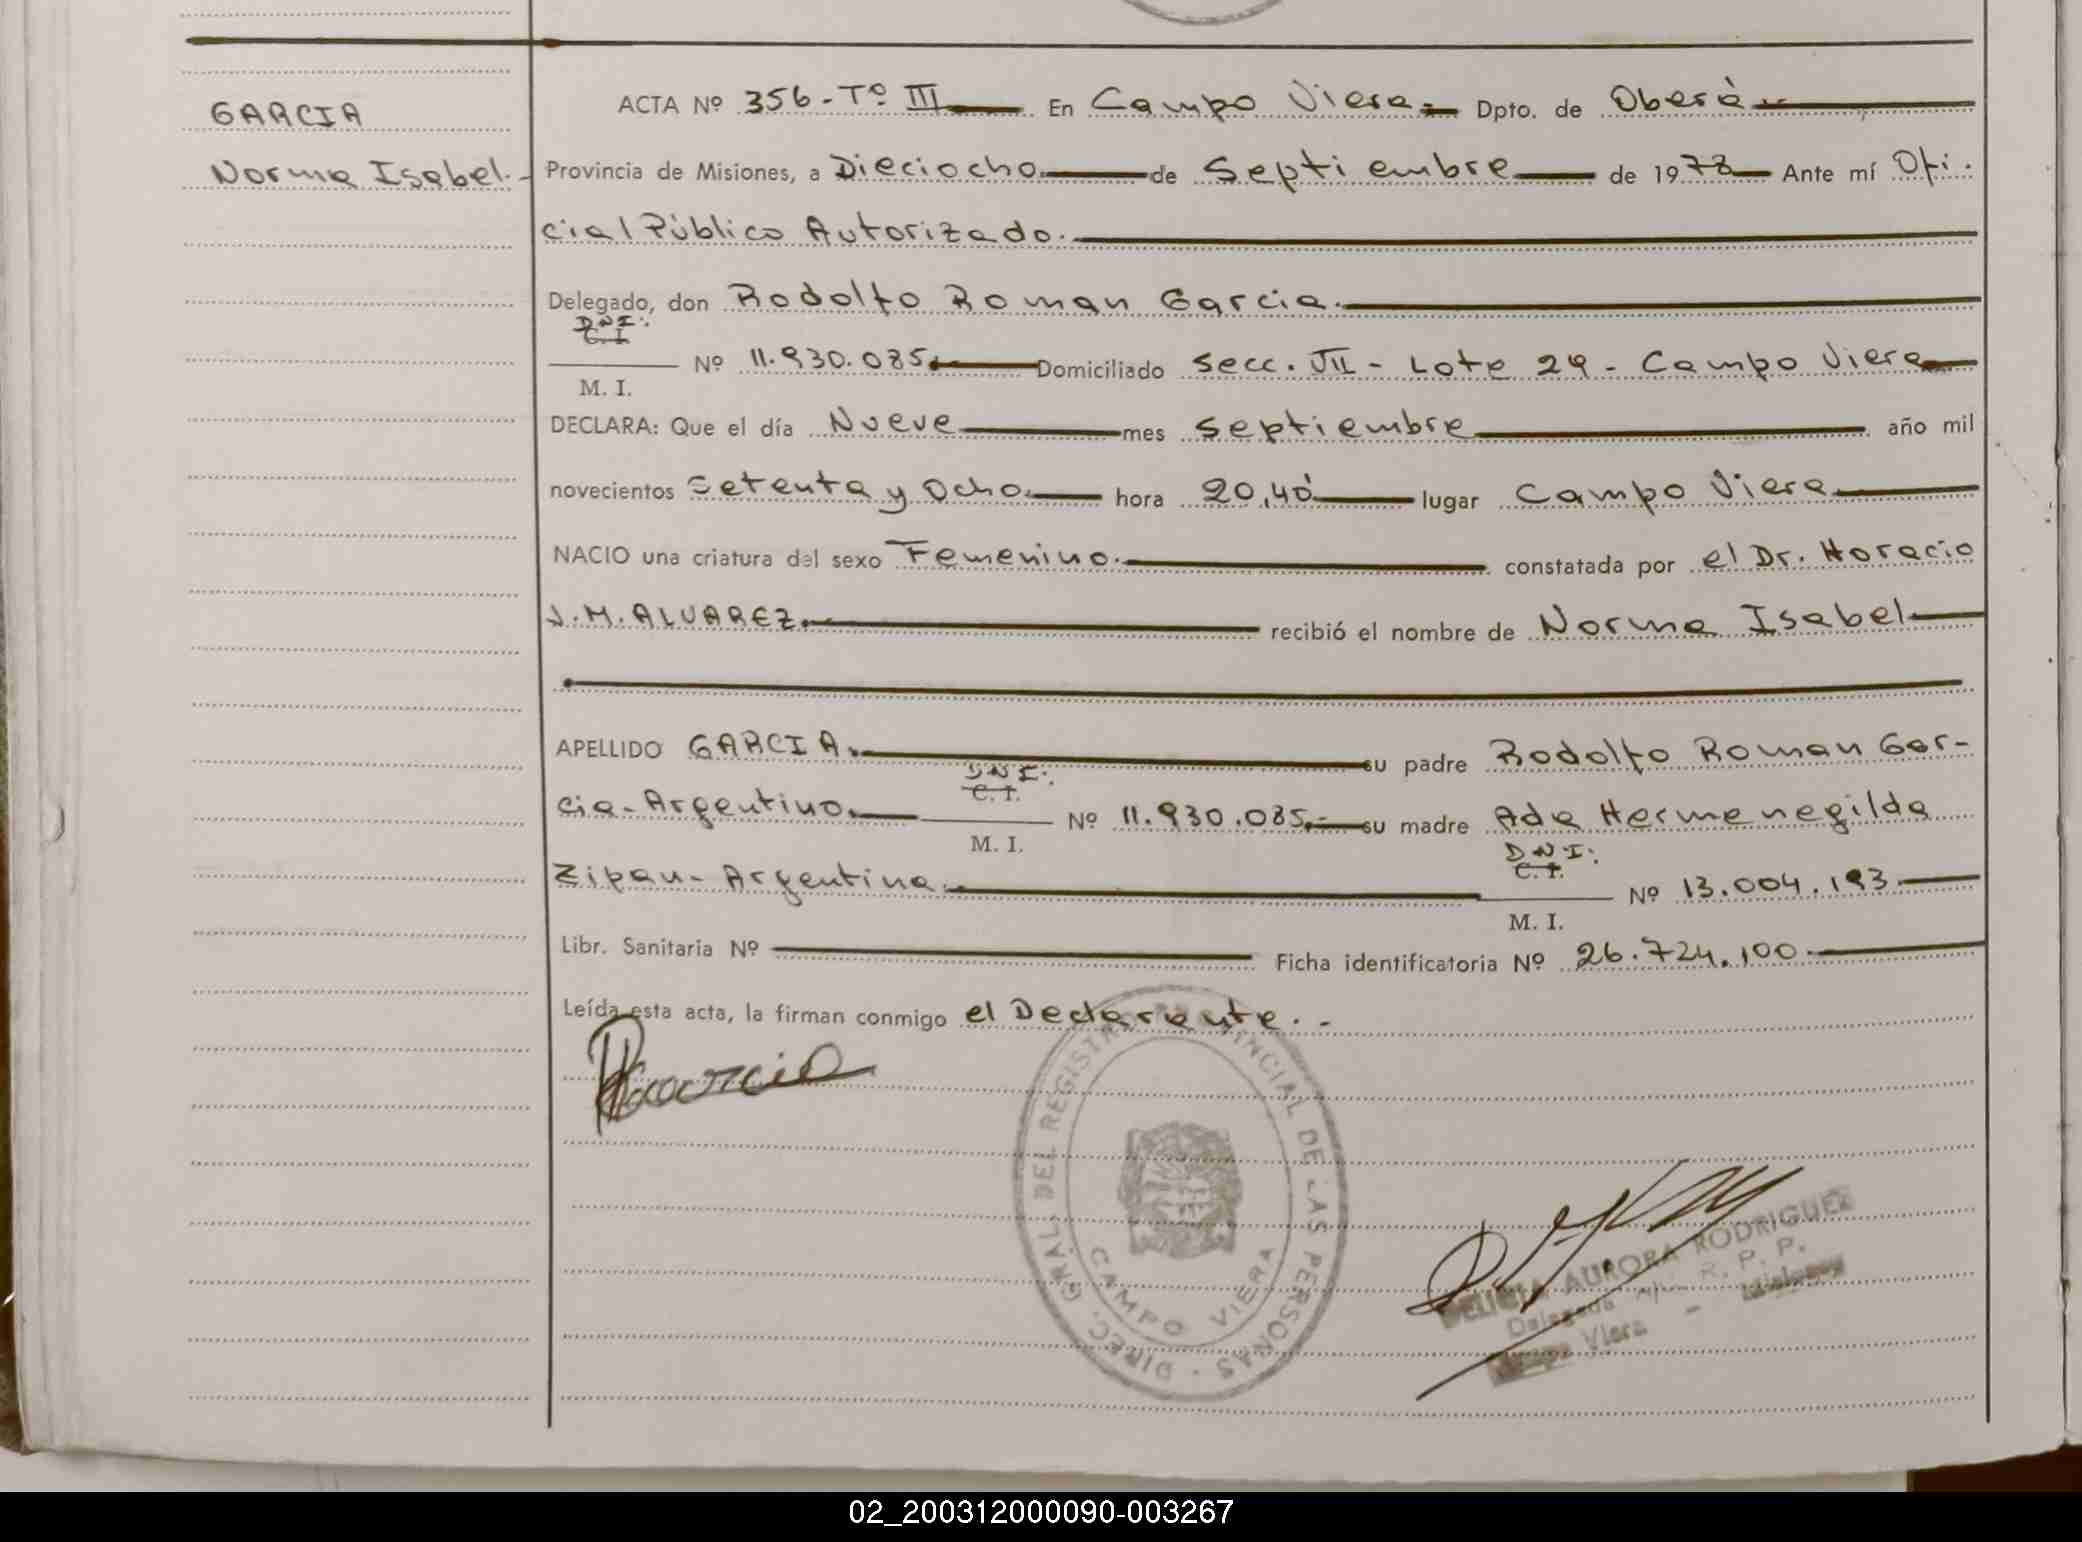 GARCIA
Norma Isabel.-
ACTA Nº 356-Tº III En Campo Viera.- Dpto. de Oberá.-
Provincia de Misiones, a Dieciocho de Septiembre de 1978 Ante mí Ofi-
cial Público Autorizado.
Delegado, don Rodolfo Roman Garcia.
DNI:
C.I
M. I. Nº 11.930.085. Domiciliado Secc. VII - Lote 29 - Campo Viera
DECLARA: Que el día Nueve mes Septiembre año mil
novecientos Setenta y Ocho hora 20,40 lugar Campo Viera
NACIO una criatura del sexo Femenino. constatada por el Dr. Horacio
J.M. ALVAREZ. recibió el nombre de Norma Isabel
APELLIDO GARCIA. su padre Rodolfo Roman Gar-
cia-Argentino. DNI: C.I. M. I. Nº 11.930.085.- su madre Ada Hermenegilda
Zipan-Argentina. DNI: C.I. M. I. Nº 13.004.193
Libr. Sanitaria Nº Ficha identificatoria Nº 26.724.100.
Leída esta acta, la firman conmigo el Declarante.-
DIREC. GRAL. DEL REGISTRO PROVINCIAL DE LAS PERSONAS -
CAMPO VIERA
DELICIA AURORA RODRIGUEZ
Delegada R. P. P.
Campo Viera - Misiones
02_200312000090-003267